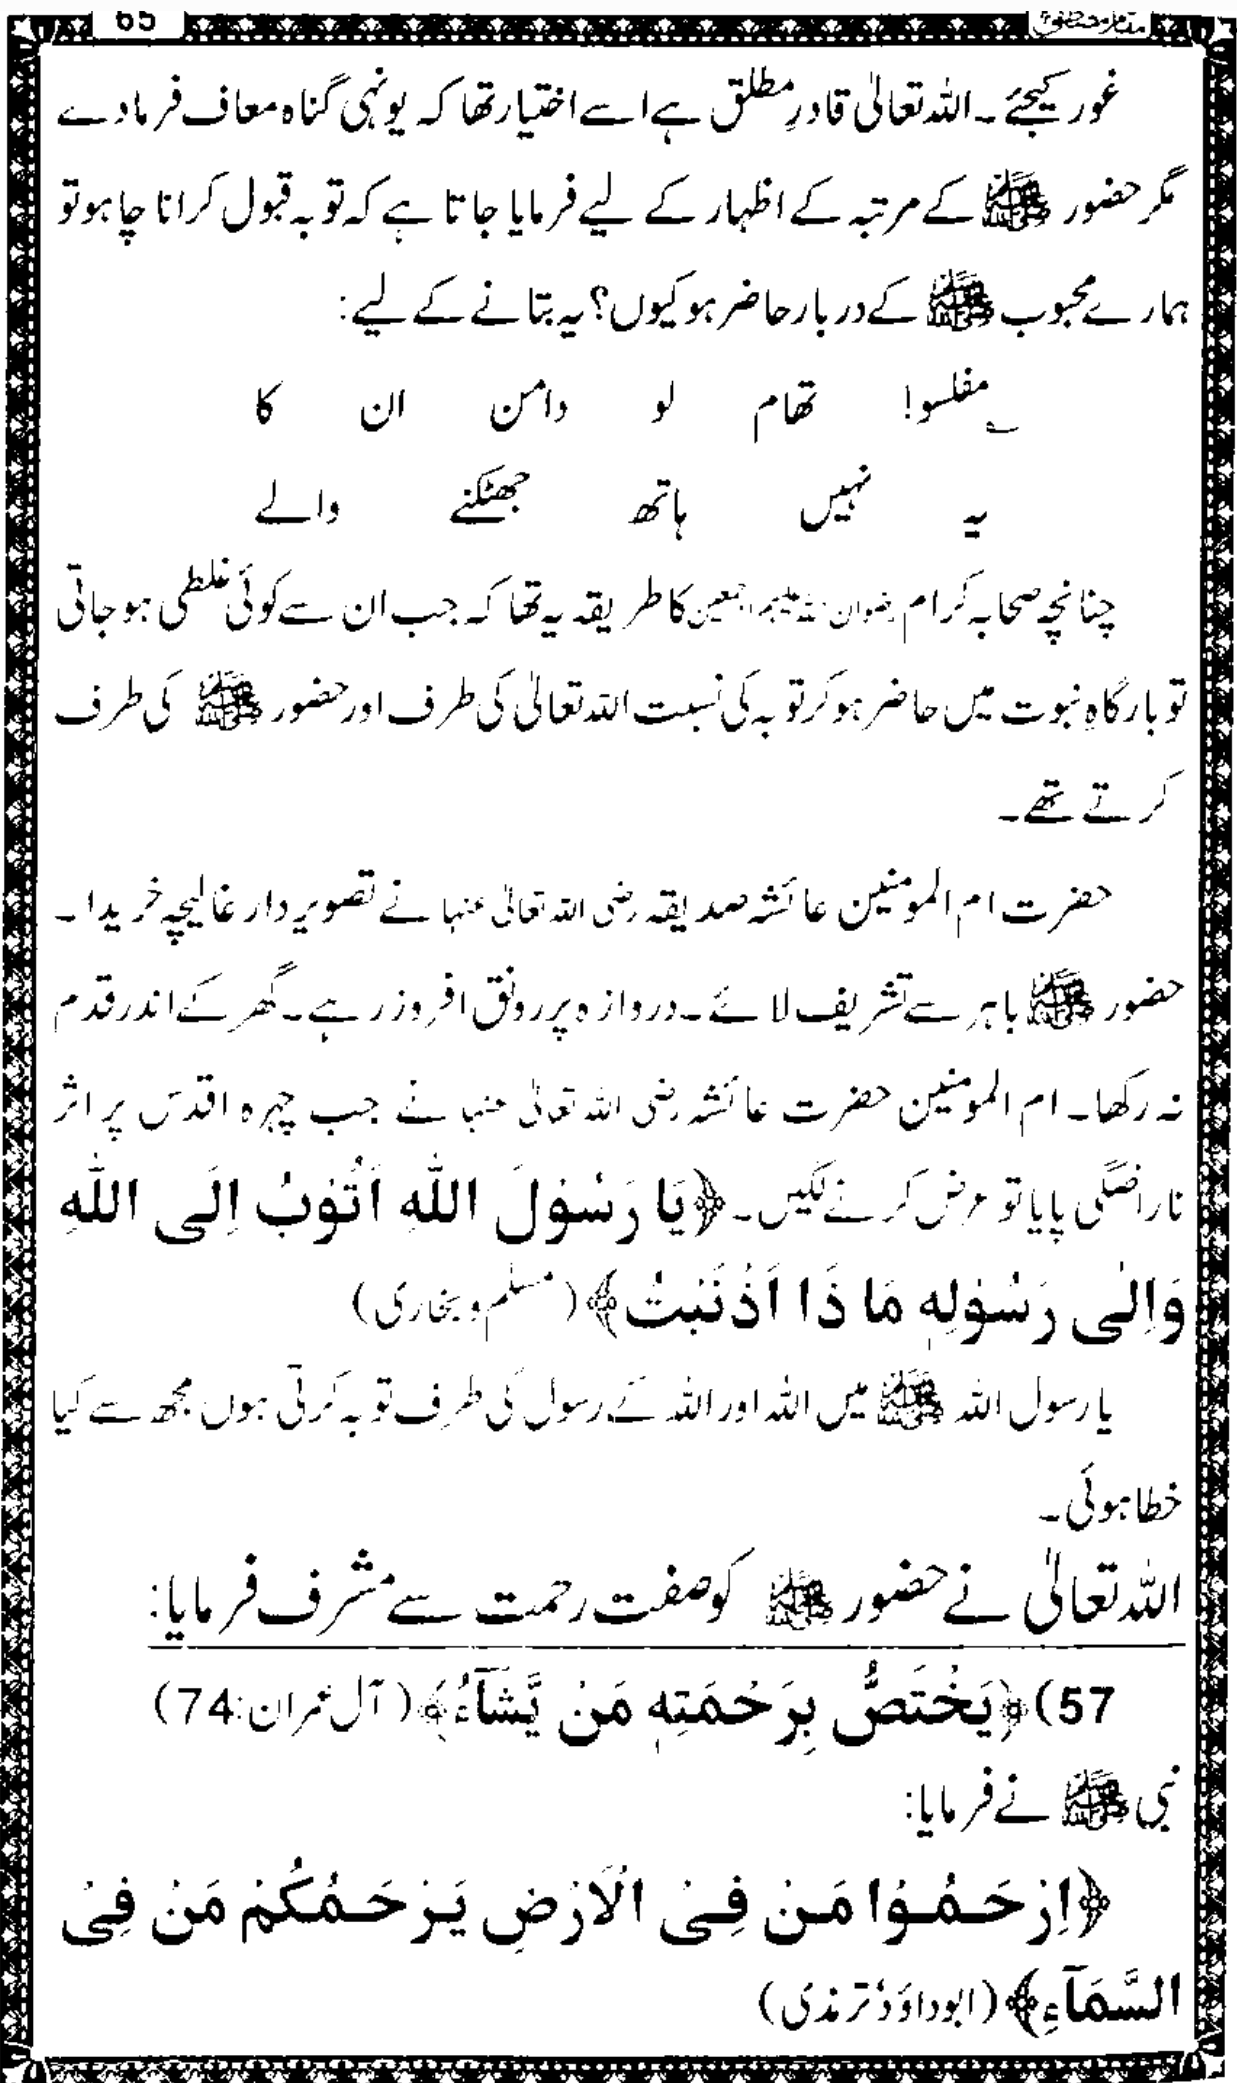 65
مقام مصطفیٰ
غور کیجئے ۔ اللہ تعالیٰ قادرِ مطلق ہے اسے اختیار تھا کہ یونہی گناہ معاف فرما دے
مگر حضور ﷺ کے مرتبہ کے اظہار کے لیے فرمایا جاتا ہے کہ توبہ قبول کرانا چاہو تو
ہمارے محبوب ﷺ کے دربار حاضر ہو کیوں؟ یہ بتانے کے لیے:
؎ مفلسو! تھام لو دامن ان کا
یہ نہیں ہاتھ جھٹکنے والے
چنانچہ صحابہ کرام رضوان اللہ علیہم اجمعین کا طریقہ یہ تھا کہ جب ان سے کوئی غلطی ہو جاتی
تو بارگاہِ نبوت میں حاضر ہو کر توبہ کی نسبت اللہ تعالیٰ کی طرف اور حضور ﷺ کی طرف
کرتے تھے۔
حضرت ام المومنین عائشہ صدیقہ رضی اللہ تعالیٰ عنہا نے تصویر دار غالیچہ خریدا۔
حضور ﷺ باہر سے تشریف لائے۔ دروازہ پر رونق افروز رہے۔ گھر کے اندر قدم
نہ رکھا۔ ام المومنین حضرت عائشہ رضی اللہ تعالیٰ عنہا نے جب چہرہ اقدس پر اثر
ناراضگی پایا تو عرض کرنے لگیں۔ ﴿یَا رَسُوْلَ اللّٰہِ اَتُوْبُ اِلَی اللّٰہِ
وَاِلٰی رَسُوْلِہٖ مَا ذَا اَذْنَبْتُ﴾ (مسلم و بخاری)
یا رسول اللہ ﷺ میں اللہ اور اللہ کے رسول کی طرف توبہ کرتی ہوں مجھ سے کیا
خطا ہوئی۔
اللہ تعالیٰ نے حضور ﷺ کو صفت رحمت سے مشرف فرمایا:
57) ﴿یَخْتَصُّ بِرَحْمَتِہٖ مَنْ یَّشَآءُ﴾ (آل عمران:74)
نبی ﷺ نے فرمایا:
﴿اِرْحَمُوْا مَنْ فِیْ الْاَرْضِ یَرْحَمُکُمْ مَنْ فِیْ
السَّمَآءِ﴾ (ابوداؤد، ترمذی)